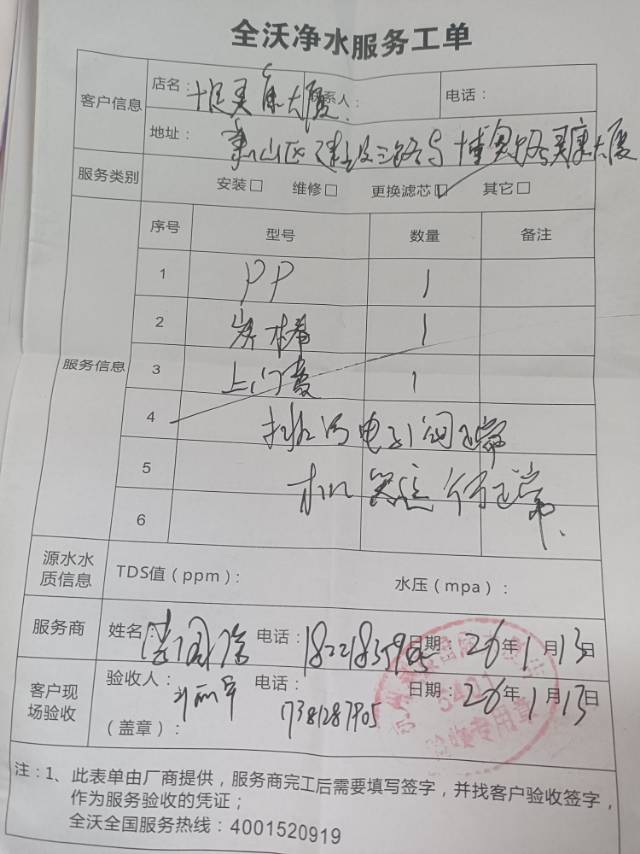 全沃净水服务工单
客户信息
店名： 大厦 联系人： 电话：
地址： 萧山区建设三路与博奥路 康大厦
服务类别 安装□ 维修□ 更换滤芯☑ 其它□
服务信息
序号 型号 数量 备注
1 PP 1
2 炭棒 1
3 上门费 1
4 电 阀正常
5 机器运行正常
6
源水水质信息 TDS值（ppm）： 水压（mpa）：
服务商 姓名： 电话： 日期：26年1月13日
客户现场验收 验收人： 电话：17381287905 日期：26年1月13日
（盖章）：
验收专用章
注：1、此表单由厂商提供，服务商完工后需要填写签字，并找客户验收签字，
作为服务验收的凭证；
全沃全国服务热线：4001520919